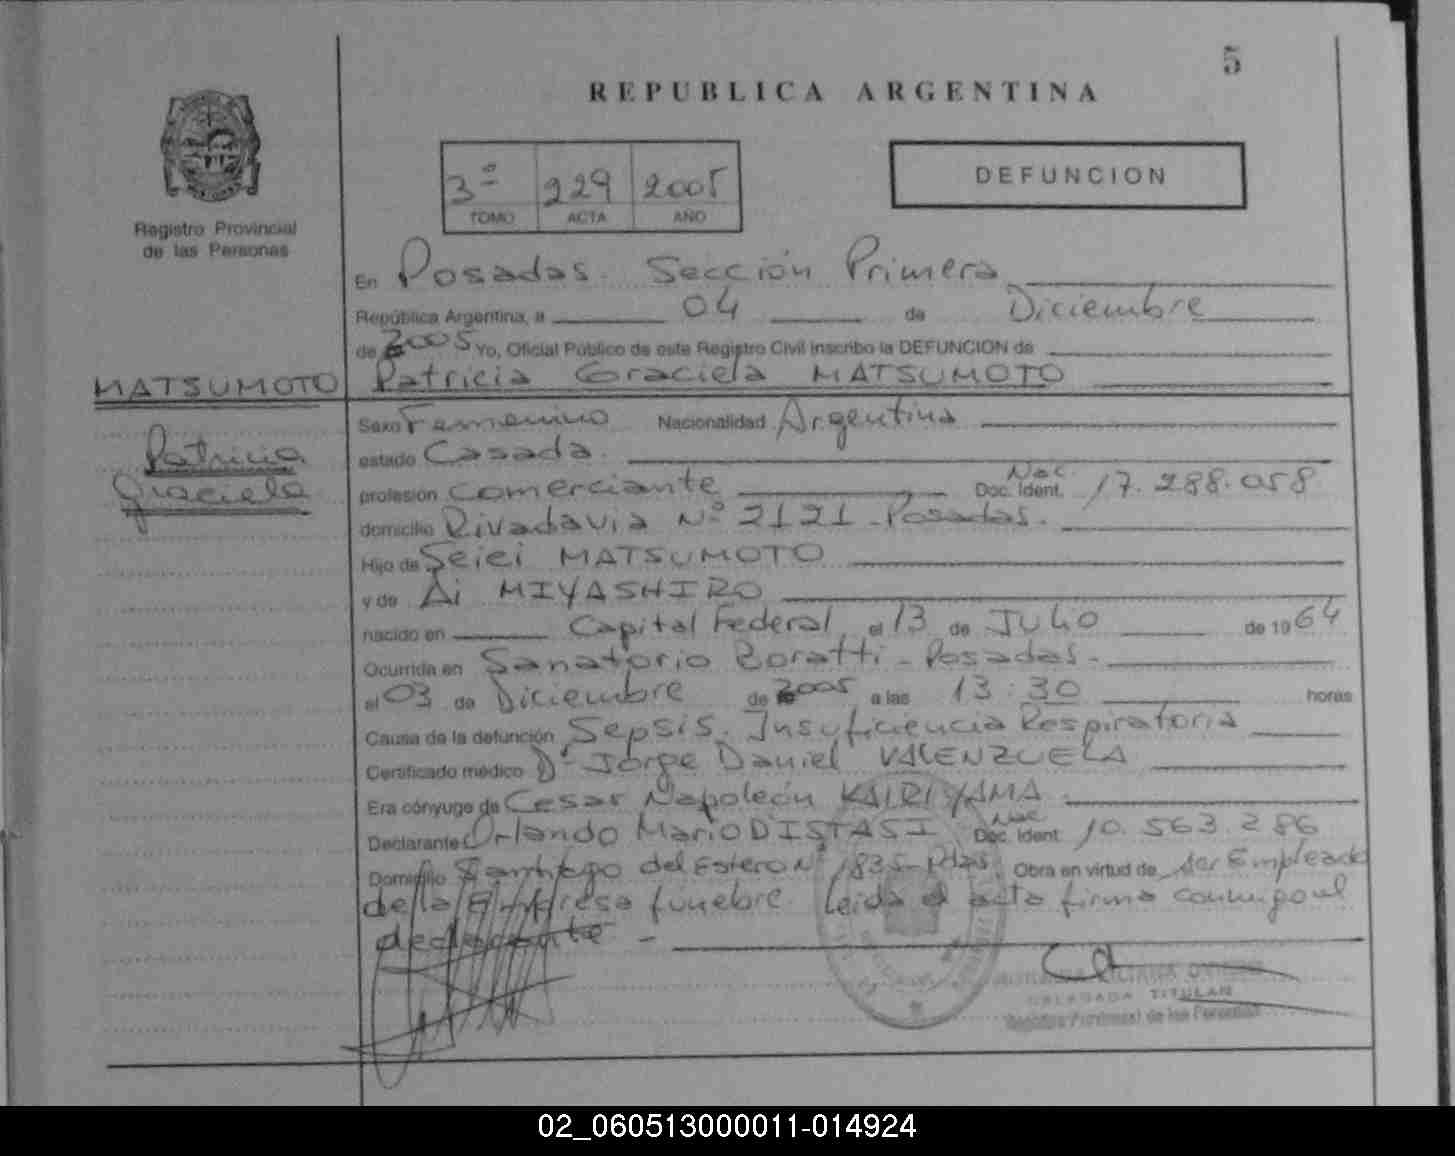 5
REPUBLICA ARGENTINA
3º 229 2005
TOMO ACTA AÑO
DEFUNCION
Registro Provincial
de las Personas
En Posadas. Sección Primera
República Argentina, a 04 de Diciembre
de 2005 Yo, Oficial Público de este Registro Civil inscribo la DEFUNCION de
MATSUMOTO Patricia Graciela MATSUMOTO
Patricia
Graciela
Sexo Femenino Nacionalidad Argentina
estado Casada.
profesión Comerciante Doc. Ident. Nac. 17.288.058
domicilio Rivadavia Nº 2121 - Posadas.
Hijo de Seiei MATSUMOTO
y de Ai MIYASHIRO
nacido en Capital Federal, el 13 de Julio de 1964
Ocurrida en Sanatorio Boratti - Posadas -
el 03 de Diciembre de 2005 a las 13:30 horas
Causa de la defunción Sepsis. Insuficiencia Respiratoria
Certificado médico Dr Jorge Daniel VALENZUELA
Era cónyuge de Cesar Napoleón KAIRIYAMA
Declarante Orlando Mario DISTASI Doc. Ident. Nac 10.563.286
Domicilio Santiago del Estero Nº 1835 - Pdas. Obra en virtud de ser Empleado
de la Empresa funebre. Leida el acta firma conmigo el
declarante -
TITULAR
Registro Provincial de las Personas
02_060513000011-014924